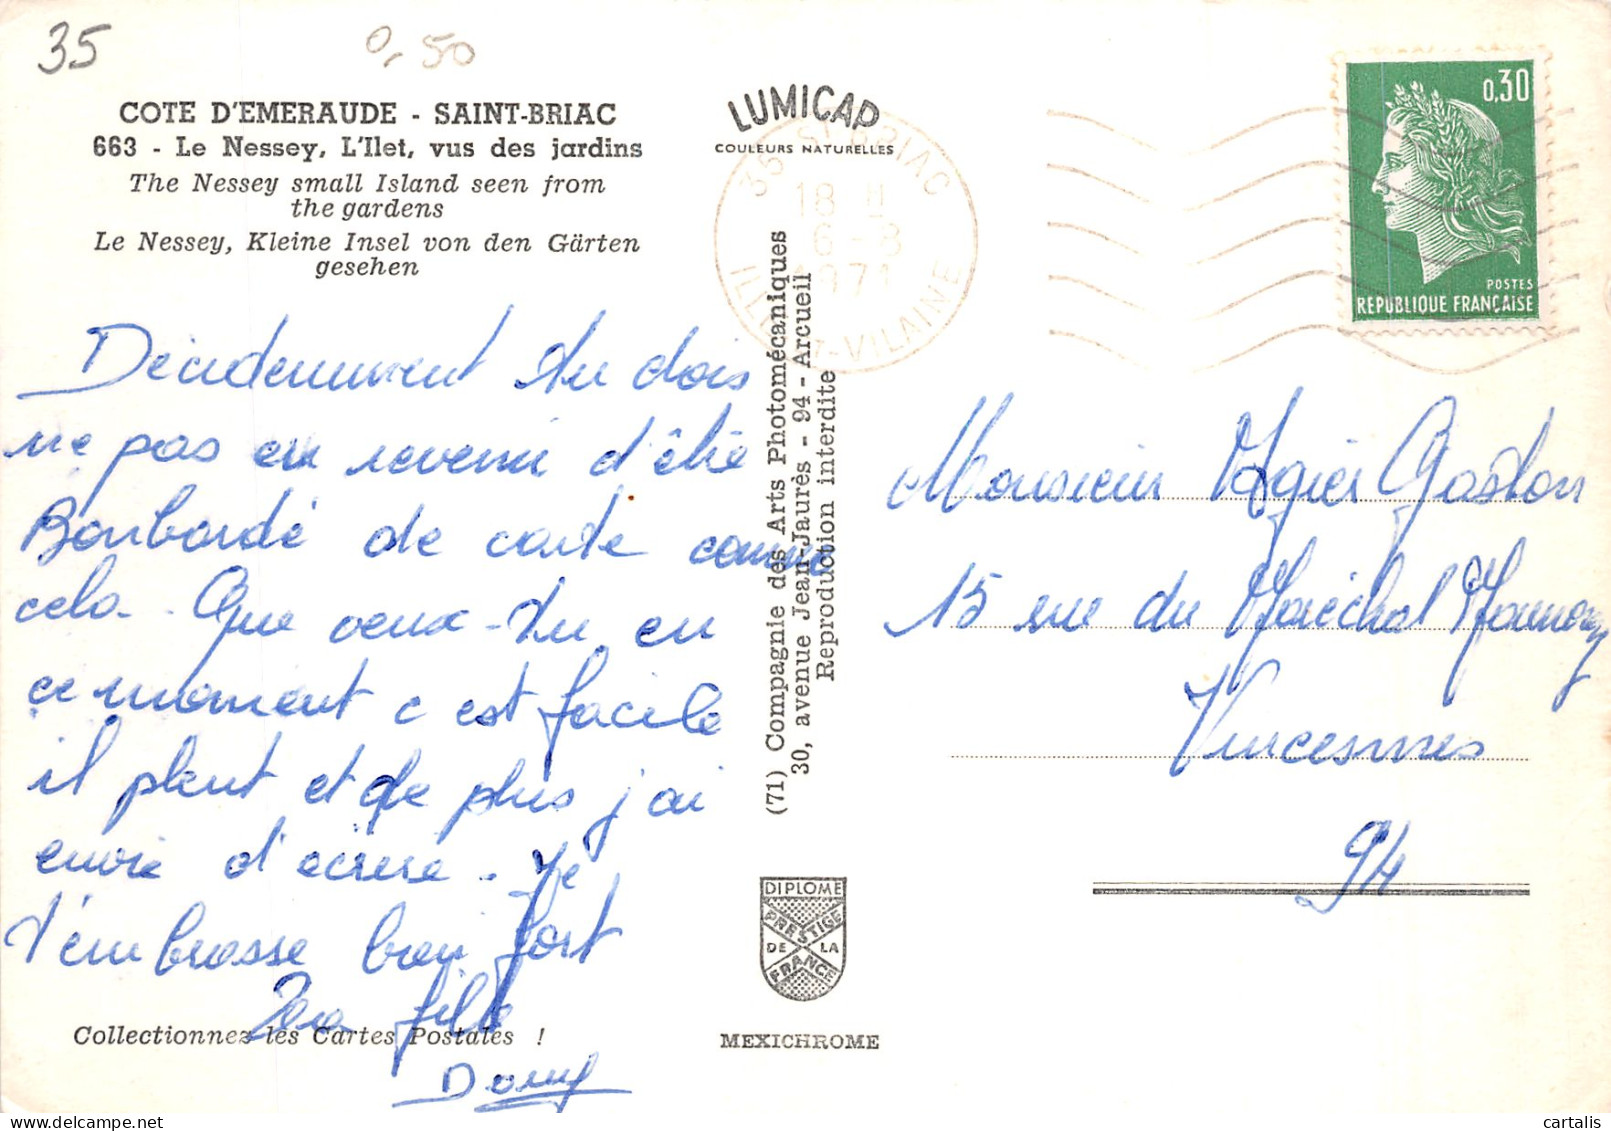 35
0,50
COTE D'EMERAUDE - SAINT-BRIAC
663 - Le Nessey, L'Ilet, vus des jardins
The Nessey small Island seen from
the gardens
Le Nessey, Kleine Insel von den Gärten
gesehen
LUMICAP
COULEURS NATURELLES
35 ST BRIAC
18 H
6 - 8
1971
ILLE-ET-VILAINE
0,30
POSTES
REPUBLIQUE FRANÇAISE
Décidemment tu dois
ne pas en revenir d'être
Bonbardé de carte comme
cela - Que veux-tu en
ce moment c est facile
il pleut et de plus j'ai
envie d'écrire. Je
t'embrasse bien fort
Ta fille
Dony
Collectionnez les Cartes Postales !
(71) Compagnie des Arts Photomécaniques
30, avenue Jean-Jaurès - 94 - Arcueil
Reproduction interdite
DIPLOME
PRESTIGE
DE LA
FRANCE
MEXICHROME
Monsieur Agier Gaston
15 rue du Maréchal Maunoury
Vincennes
94
cartalis
delcampe.net